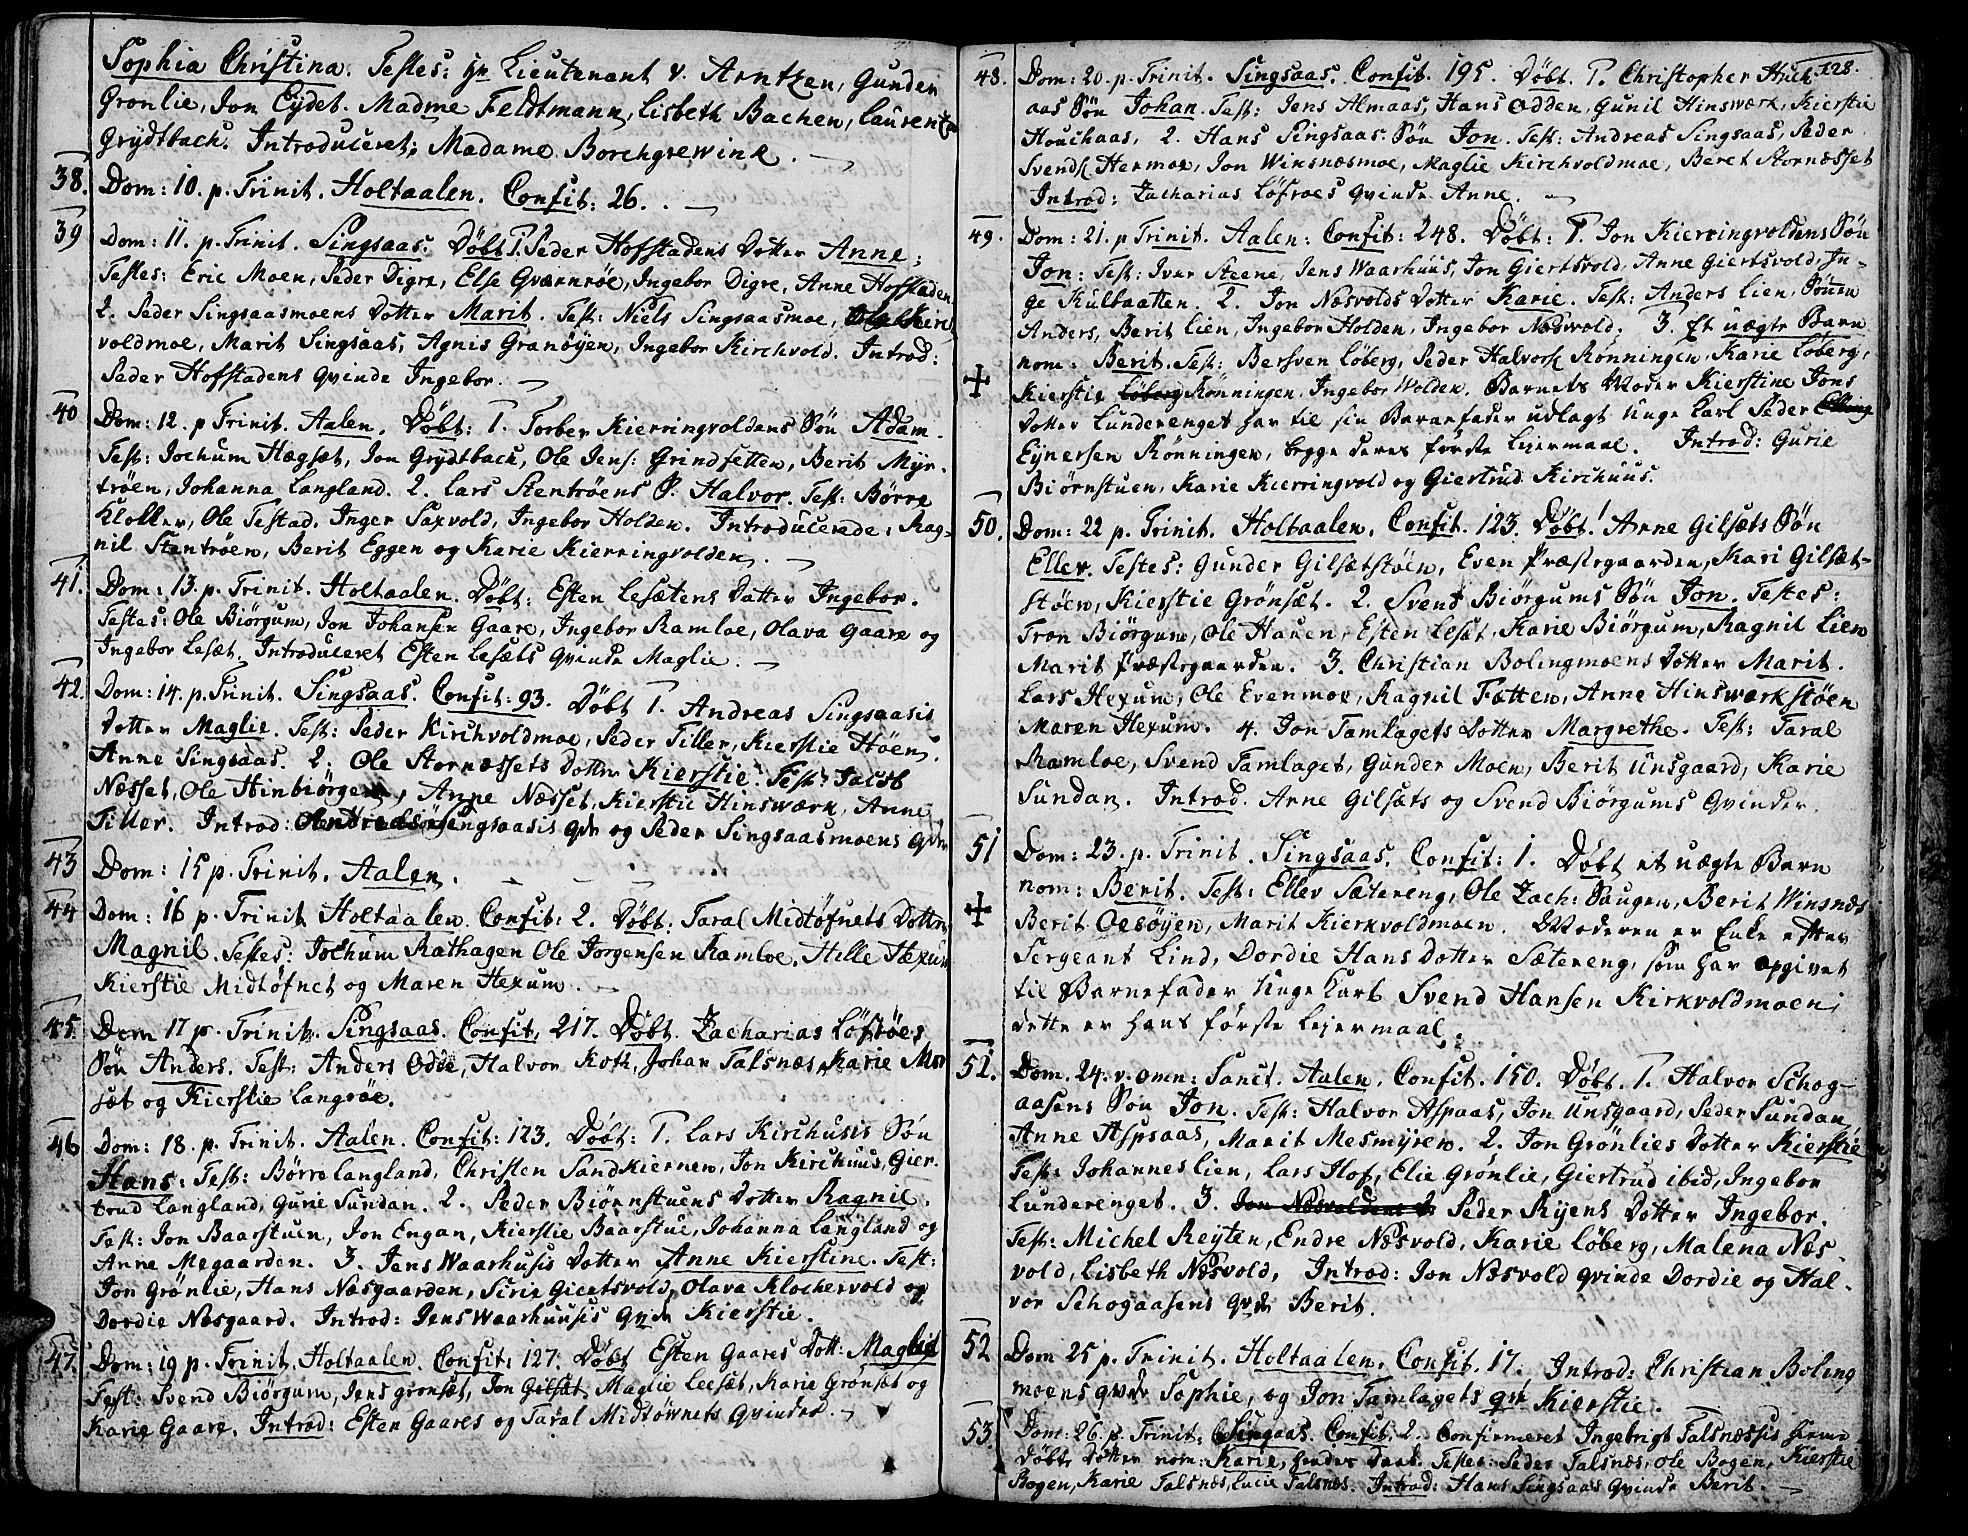 Sophia Christina. Testes: hr Lieutenant v. Arntzen, Gunder
Gronlie, Jon Eydet. Madme Feldtmann, Lisbeth Bachen, Laurentz
Grydtbach. Introduceret: Madame Borchgrewink.
38. Dom: 10. p. Trinit. Holtaalen. Confit: 26.
39 Dom: 11. p. Trinit. Singsaas. Döbt 1. Peder Hofstadens Dotter Anne;
Testes: Eric Moen, Peder Digre, Else Qværnröe, Ingebor Digre, Anne Hofstaden
2. Peder Singsaasmoens Dotter Marit. Test: Niels Singsaasmoe,
voldmoe, Marit Singsaas, Agnis Granöyen, Ingebor Kirchvold. Introd:
Peder Hofstadens Qvinde Ingebor.
40 Dom: 12. p Trinit. Aalen. Döbt: 1. Torber Kierringvoldens Sön Adam.
Test: Jochum Hægset, Jon Grydtbach, Ole Jens: Grindfetten, Berit Myr-
tröen, Johanna Langland. 2. Lars Stentröens S. Halvor. Test: Börre
Klokker, Ole Testad, Inger Saxvold, Ingebor Holden. Introducerede: Rag-
nil Stentröen, Berit Eggen og Karie Kierringvolden.
41. Dom: 13. p. Trinit. Holtaalen. Döbt: Esten Lesætens Dotter Ingebor.
Testes: Ole Biörgum, Jon Johansen Gaare, Ingebor Ramloe, Olava Gaare og
Ingebor Lesæt. Introduceret Esten Lesæts Qvinde Maglie.
42. Dom: 14. p. Trinit. Singsaas. Confit: 93. Döbt 1. Andreas Singsaasis
Dotter Maglie. Test: Peder Kirchvoldmoe, Peder Tiller, Kierstie Stöen,
Anne Singsaas. 2. Ole Stornæssets Dotter Kierstie. Test: Jacob
Næsset, Ole Hinbiörgen, Anne Næsset, Kierstie Hinswærk, Anne
Tiller. Introd: Andreas Singsaasis Qvd og Peder Singsaasmoens Qvd
43 Dom: 15 p. Trinit. Aalen.
44 Dom: 16 p. Trinit Holtaalen. Confit: 2. Döbt: Taral Midtöfnets Dotter
Magnil. Testes: Jochum Rathagen Ole Jorgensen Ramloe, Hille Hexum
Kierstie Midtöfnet og Maren Hexum.
45. Dom 17 p. Trinit. Singsaas. Confit, 217. Döbt. Zacharias Löfröes
Sön Anders. Test: Anders Odde, Halvor Koth, Johan Talsnæs, Karie Mor
sæt og Kierstie Langröe.
46 Dom: 18. p. Trinit. Aalen. Confit: 123. Döbt: 1. Lars Kirchusis Sön
Hans: Test: Börre Langland, Christen Sandkiernen, Jon Kirchuus, Gier-
trud Langland, Gurie Sundan. 2. Peder Biörnstuens Dotter Ragnil.
Test: Jon Baarstuen, Jon Engan, Kierstie Baarstue, Johanna Langland og
Anne Megaarden. 3. Jens Waarhusis Dotter Anne Kierstine. Test:
Jon Grönlie, Hans Næsgaarden, Siri Giertsvold, Olava Klochervold og
Dordie Næsgaard. Introd: Jens Waarhuusis Qvde Kierstie.
47. Dom: 19 p. Trinit. Holtaalen. Confit: 127. Döbt Esten Gaares Dott: Maglid
Test: Svend Biörgum, Jens Gronset, Jon Gilsæt, Maglie Leesæt, Karie Grönset og
Karie Gaare. Introd: Esten Gaares og Taral Midtöwnets Qvinder.
128.
48. Dom: 20. p. Trinit. Singsaas. Confit. 195. Döbt. 1. Christopher Huch-
aas Sön Johan. Test: Jens Almaas, Hans Odden, Gunil Hinswærk, Kierstie
Houchaas, 2. Hans Singsaas Sön Jon. Test: Andreas Singsaas, Peder
Svends. Hermoe, Jon Winsnæsmoe, Maglie Kirchvoldmoe, Beret Stornæsset
Introd: Zacharias Löfroes Qvinde Anne.
49. Dom: 21. p Trinit. Aalen: Confit: 248. Döbt: 1. Jon Kierringvoldens Sön
Jon: Test: Iver Steene, Jens Waarhuus, Jon Giertsvold, Anne Giertsvold, In-
ge Kulbaatten. 2. Jon Næsvolds Dotter Karie. Test: Anders Lien, Sören
Anders, Berit Lien, Ingebor Holden, Ingebor Næsvold. 3. Et uægte Barn
nom: Berit. Test: Bersven Löberg, Peder Halvors. Rönningen, Karie Löberg,
Kierstie Löberg Rönningen, Ingebor Wolden. Barnets Moder Kierstine Jons
Dotter Lunderenget har til sin Barnefader udlagt Unge Karl Peder
Eynersen Rönningen, begge deres förste Lejermaal. Introd: Gurie
Biörnstuen, Karie Kierringvold og Giertrud Kirchuus.
50. Dom: 22 p. Trinit. Holtaalen. Confit. 123. Döbt 1. Arne Gilsæts Sön
Ellev. Testes: Gunder Gilsætstöen, Even Præstegaarden, Kari Gilsæt-
stöen, Kierstie Grönsæt. 2. Svend Biörgums Sön Jon. Testes:
Tron Biörgum, Ole Hauen, Esten Lesæt, Karie Biörgum, Ragnil Lien
Marit Præstegaarden. 3. Christian Bolingmoens Dotter Marit.
Lars Hexum, Ole Evenmoe, Ragnil Fatten, Anne Hinswærkstöen
Maren Hexum. 4. Jon Tamlagets Dotter Margrethe. Test: Taral
Ramloe, Svend Tamlaget, Gunder Moen, Berit Unsgaard, Karie
Sundan. Introd. Arne Gilsæts og Svend Biörgums Qvinder.
51 Dom: 23. p. Trinit. Singsaas. Confit: 1. Döbt et uægte Barn
nom: Berit. Test: Ellev Sætereng, Ole Zach: Paugen, Berit Winsnæs
Berit Oesöyen, Marit Kierkvoldmoen. Moderen er Enke efter
Sergeant Lind, Dordie Hans Dotter Sætereng, som har opgivet
til Barnefader Unge Karl Svend Hansen Kirkvoldmoen;
dette er hans förste Lejermaal.
52. Dom. 24. v. Omn: Sanct. Aalen. Confit. 150. Döbt. 1. Halvor Schog-
aasens Sön Jon. Test: Halvor Aspaas, Jon Unsgaard, Peder Sundan,
Anne Aspsaas, Marit Mesmyren. 2. Jon Grönlies Dotter Kierstie
Test: Johannes Lien, Lars Hof, Elie Grönlie, Giertrud ibid, Ingebor
Lunderenget. 3. Jon Næsvoldens D Peder Ryens Dotter Ingebor.
Test: Michel Reyten, Endre Næsvold, Karie Löberg, Malena Næs-
vold, Lisbeth Næsvold. Introd: Jon Næsvold Qvinde Dordie og Hal-
vor Schogaasens Qvd Berit.
52 Dom 25 p. Trinit. Holtaalen. Confit. 17. Introd: Christian Boling
moens Qvde Sophie, og Jon Tamlagets Qv Kierstie.
53. Dom: 26. p. Trinit. Singaas. Confit. 2. Confirmeret Ingebrigt Talsnæssis hieme
Döbte Dotter nom: Karie, Testes: Peder Talsnæs, Ole Bogen, Kierstie
Bogen, Karie Talsnæs, Lucie Talsnæs. Introd: Hans Singsaas Qvinde Berit.